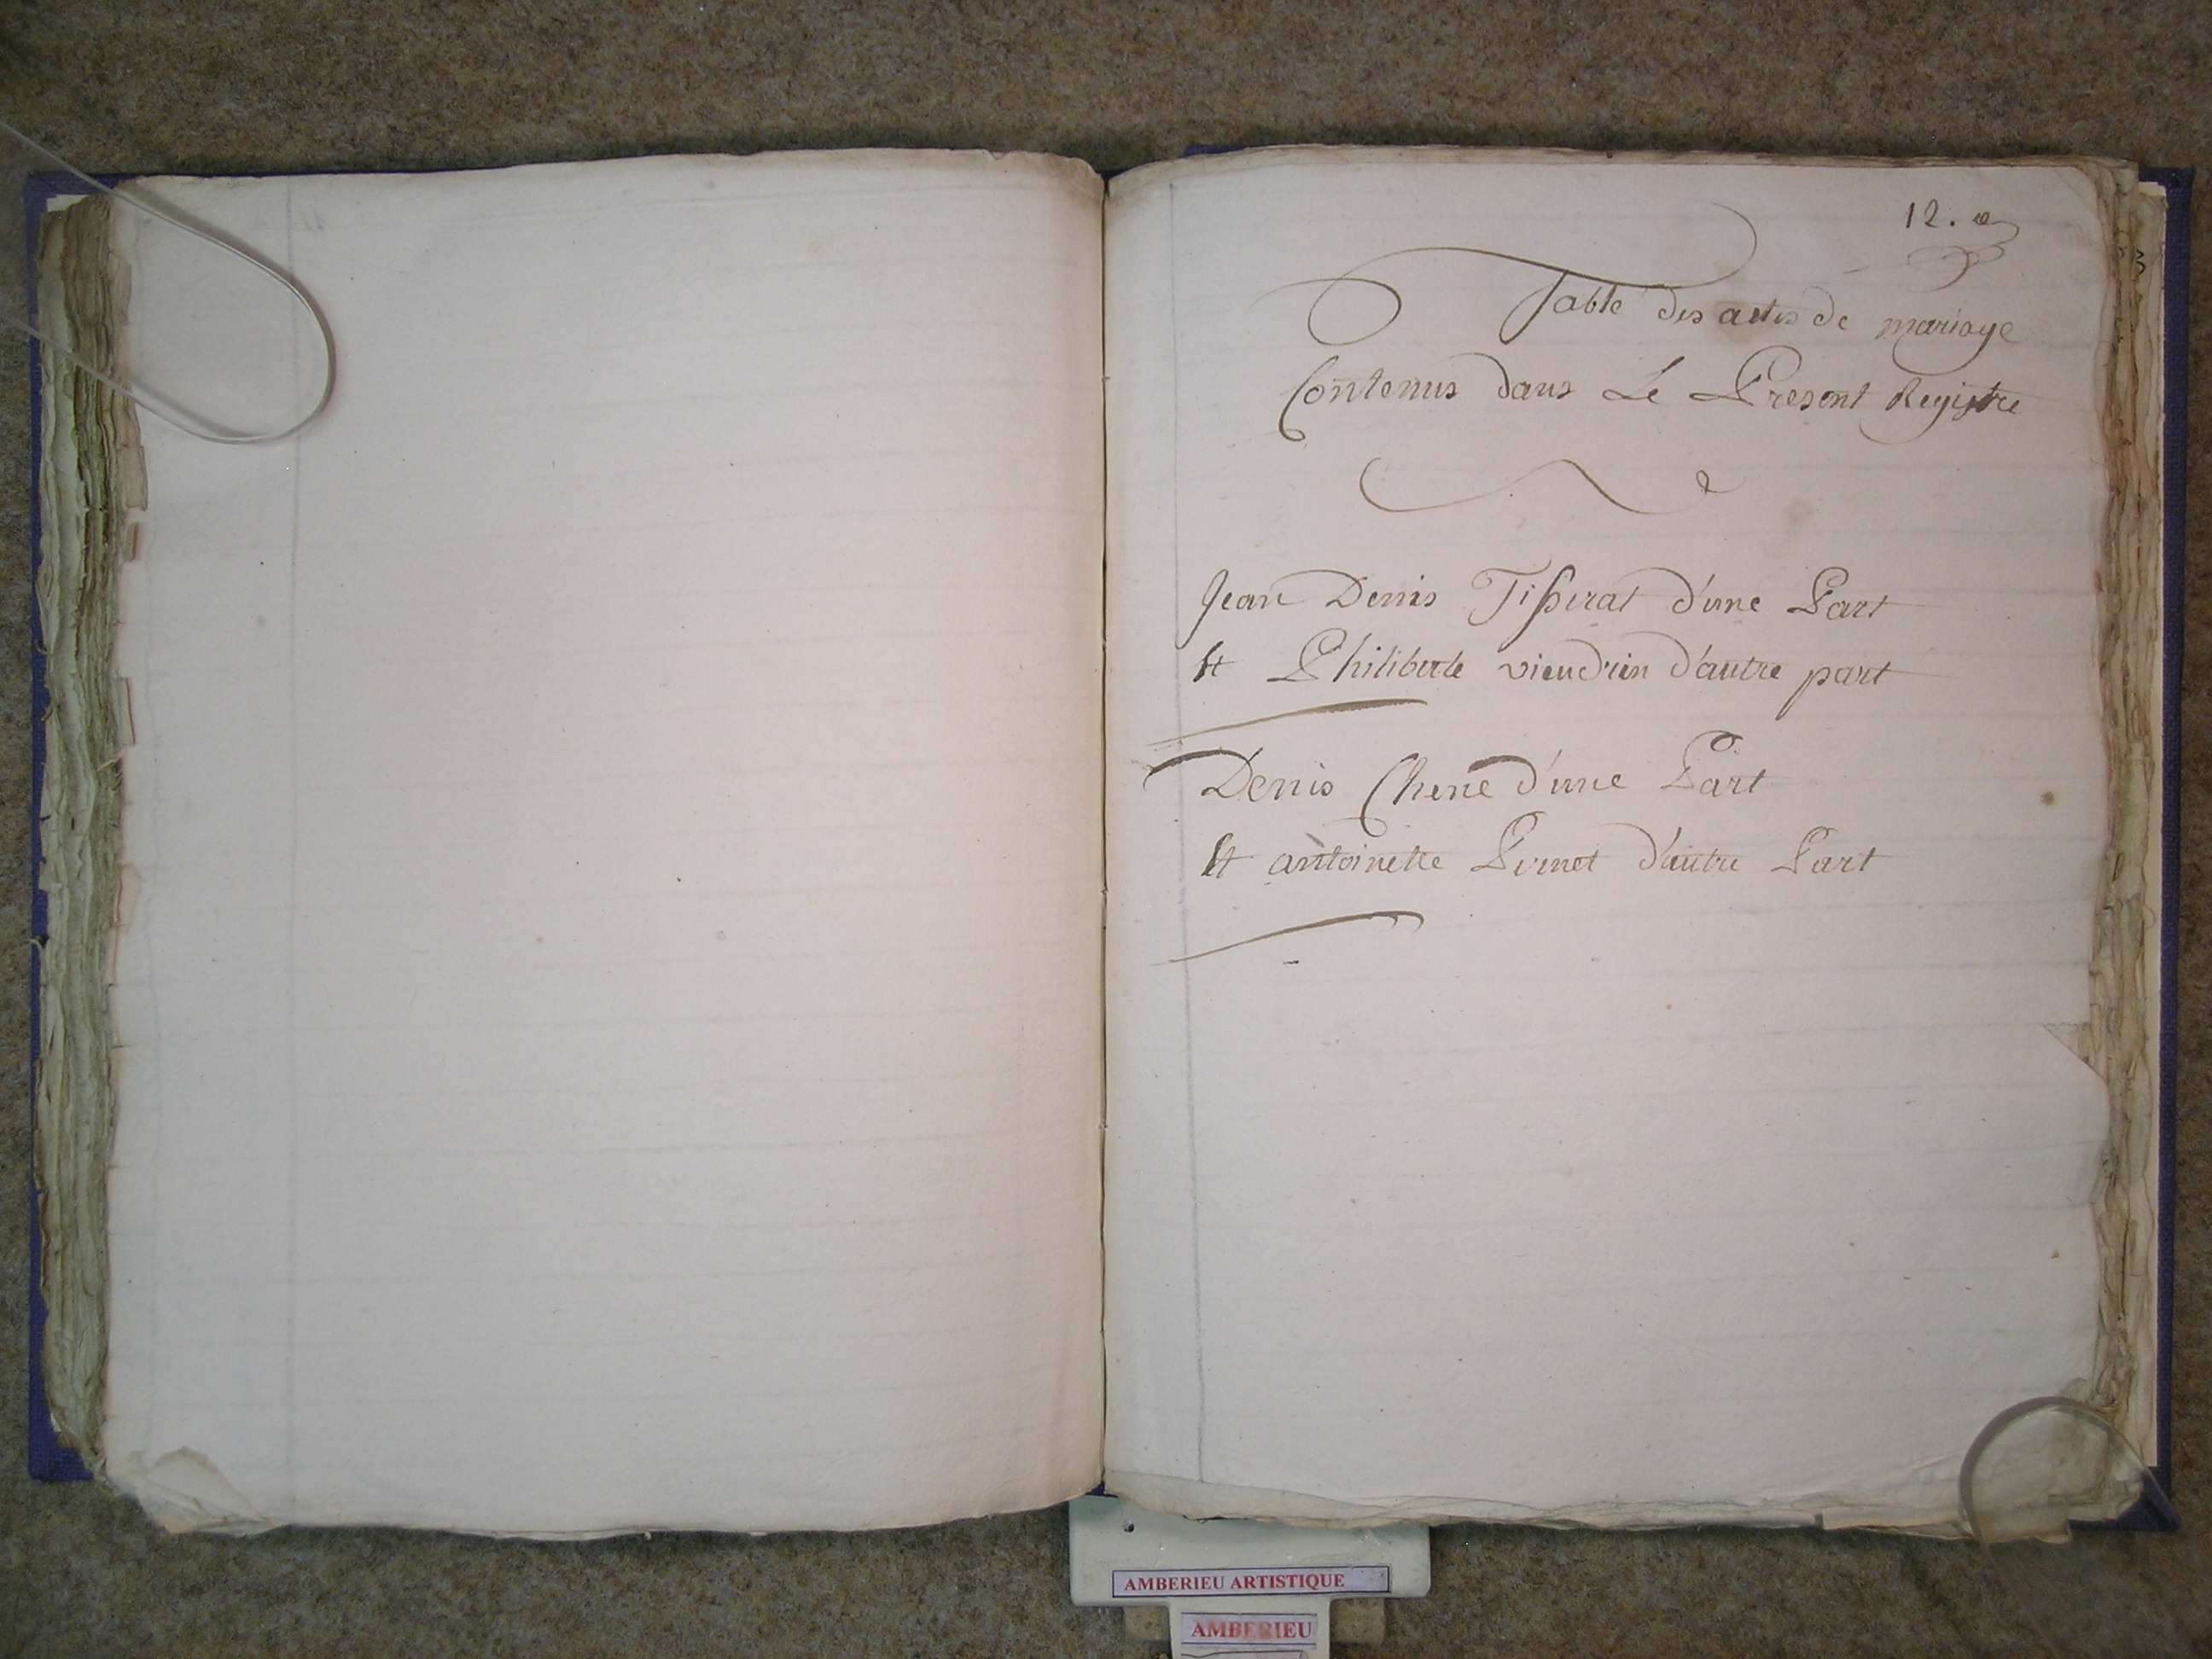 12.
Table des actes de mariage
Contenus dans Le Present Registre
Jean Denis Tisserat d'une Part
Et Philiberte vieudrin d'autre part
Denis Chene d'une Part
Et antoinette Pernet d'autre Part
AMBERIEU ARTISTIQUE
AMBERIEU